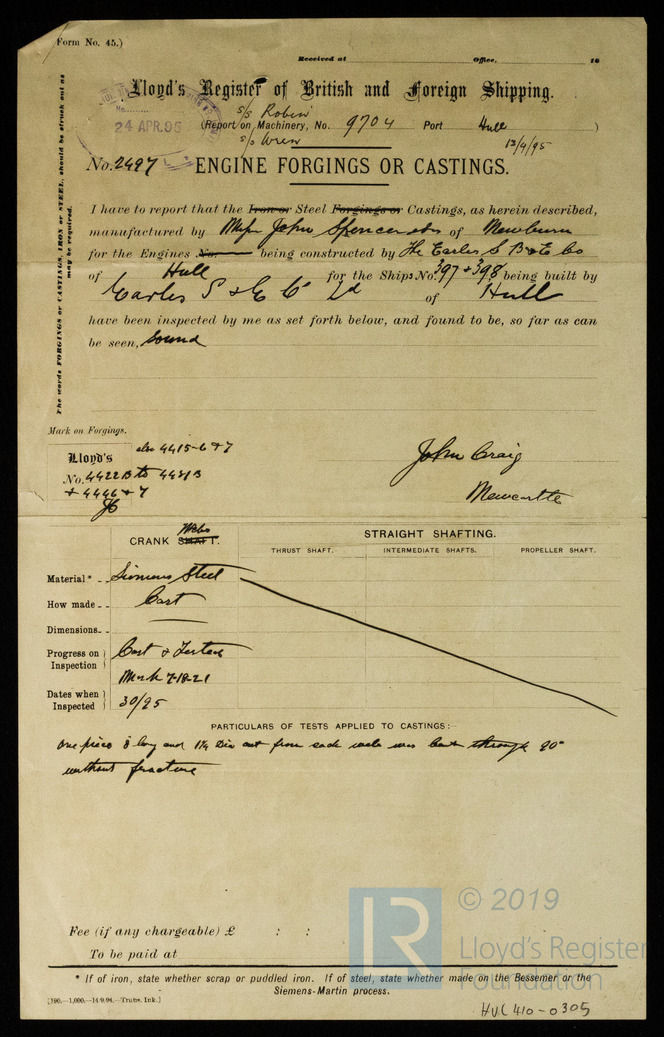 Form No. 45.)
Received at Office, 18
Lloyd's Register of British and Foreign Shipping.
s/s Robin
24 APR.95
(Report on Machinery, No. 9704 Port Hull )
s/s Wren 13/4/95
No. 2497 ENGINE FORGINGS OR CASTINGS.
The words FORGINGS or CASTINGS, IRON or STEEL, should be struck out as
may be required.
I have to report that the Iron or Steel Forgings or Castings, as herein described,
manufactured by Messrs John Spencer & Sons of Newburn
for the Engines No. being constructed by The Earles S B & E Co
of Hull for the Ships No. 397 & 398 being built by
Earles S & E Co Ld of Hull
have been inspected by me as set forth below, and found to be, so far as can
be seen, sound
Mark on Forgings.
Lloyd's also 4415-6 & 7
No. 4422B to 4431B
& 4446 & 7
JC
John Craig
Newcastle
CRANK SHAFT. Webs
STRAIGHT SHAFTING.
THRUST SHAFT. INTERMEDIATE SHAFTS. PROPELLER SHAFT.
Material* Siemens Steel
How made Cast
Dimensions
Progress on Inspection Cast & Tested
March 7-18-21
Dates when Inspected 30/95
PARTICULARS OF TESTS APPLIED TO CASTINGS:—
One piece 8 long and 1¼ Dia cut from each web was bent through 90°
without fracture
Fee (if any chargeable) £ : :
To be paid at
* If of iron, state whether scrap or puddled iron. If of steel, state whether made on the Bessemer or the
Siemens-Martin process.
[190.—1,000.—14.9.94.—Transfr. Ink.]
LR
© 2019
Lloyd's Register
Foundation
HUL410-0305